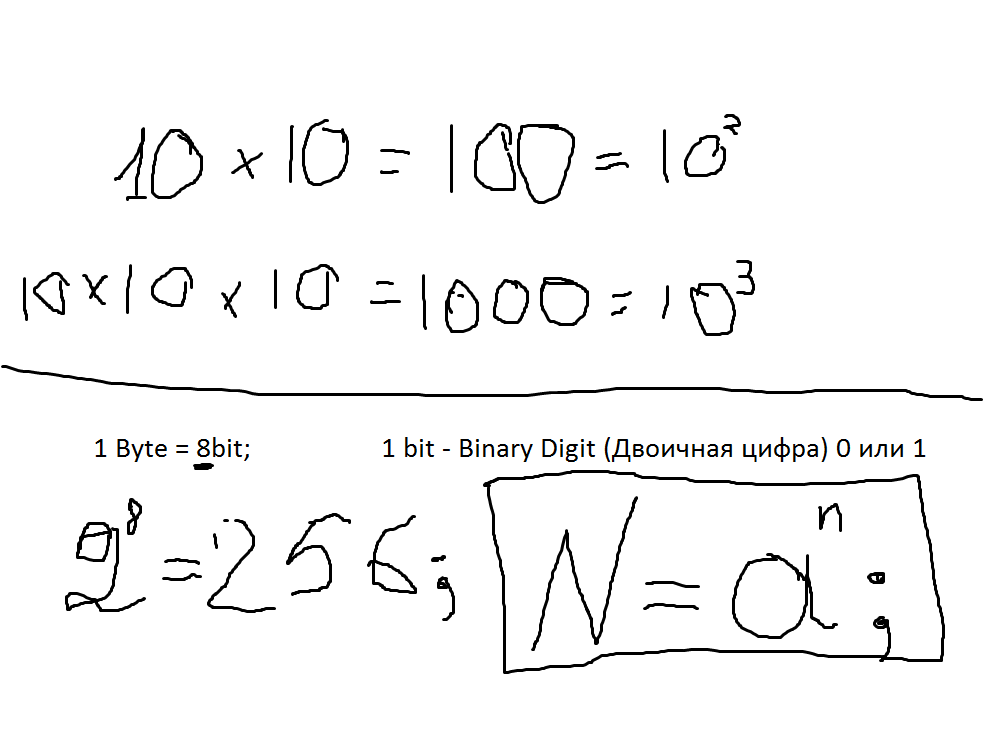 10 × 10 = 100 = 10²
10 × 10 × 10 = 1000 = 10³
1 Byte = 8bit; 1 bit - Binary Digit (Двоичная цифра) 0 или 1
2⁸ = 256; N = aⁿ;